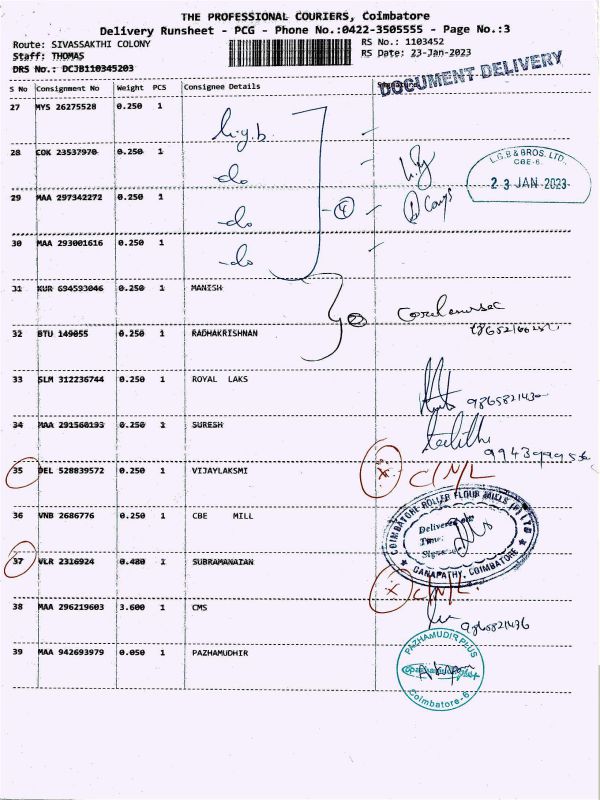 THE PROFESSIONAL COURIERS, Coimbatore
Delivery Runsheet - PCG - Phone No.:0422-3505555 - Page No.:3
Route: SIVASSAKTHI COLONY
RS No.: 1103452
Staff: THOMAS
RS Date: 23-Jan-2023
DRS No.: DCJB110345203
DOCUMENT DELIVERY
S No Consignment No Weight PCS Consignee Details Signature
27 MYS 26275528 0.250 1 L.g.b.
28 COK 23537970 0.250 1 -do
L.G.B & BROS. LTD.,
CBE-6.
23 JAN 2023
29 MAA 297342272 0.250 1 -do
4
30 MAA 293001616 0.250 1 -do
31 KUR 694593046 0.250 1 MANISH
32 BTU 149055 0.250 1 RADHAKRISHNAN
33 SLM 312236744 0.250 1 ROYAL LAKS
34 MAA 291560193 0.250 1 SURESH
35 DEL 528839572 0.250 1 VIJAYLAKSMI x C/N/L
36 VNB 2686776 0.250 1 CBE MILL
COIMBATORE ROLLER FLOUR MILLS (P) LTD
Delivered on:
Time:
Signature
GANAPATHY, COIMBATORE
37 VLR 2316924 0.480 1 SUBRAMANAIAN x C/N/L.
38 MAA 296219603 3.600 1 CMS
39 MAA 942693979 0.050 1 PAZHAMUDHIR
PAZHAMUDIR PLUS
Coimbatore-6